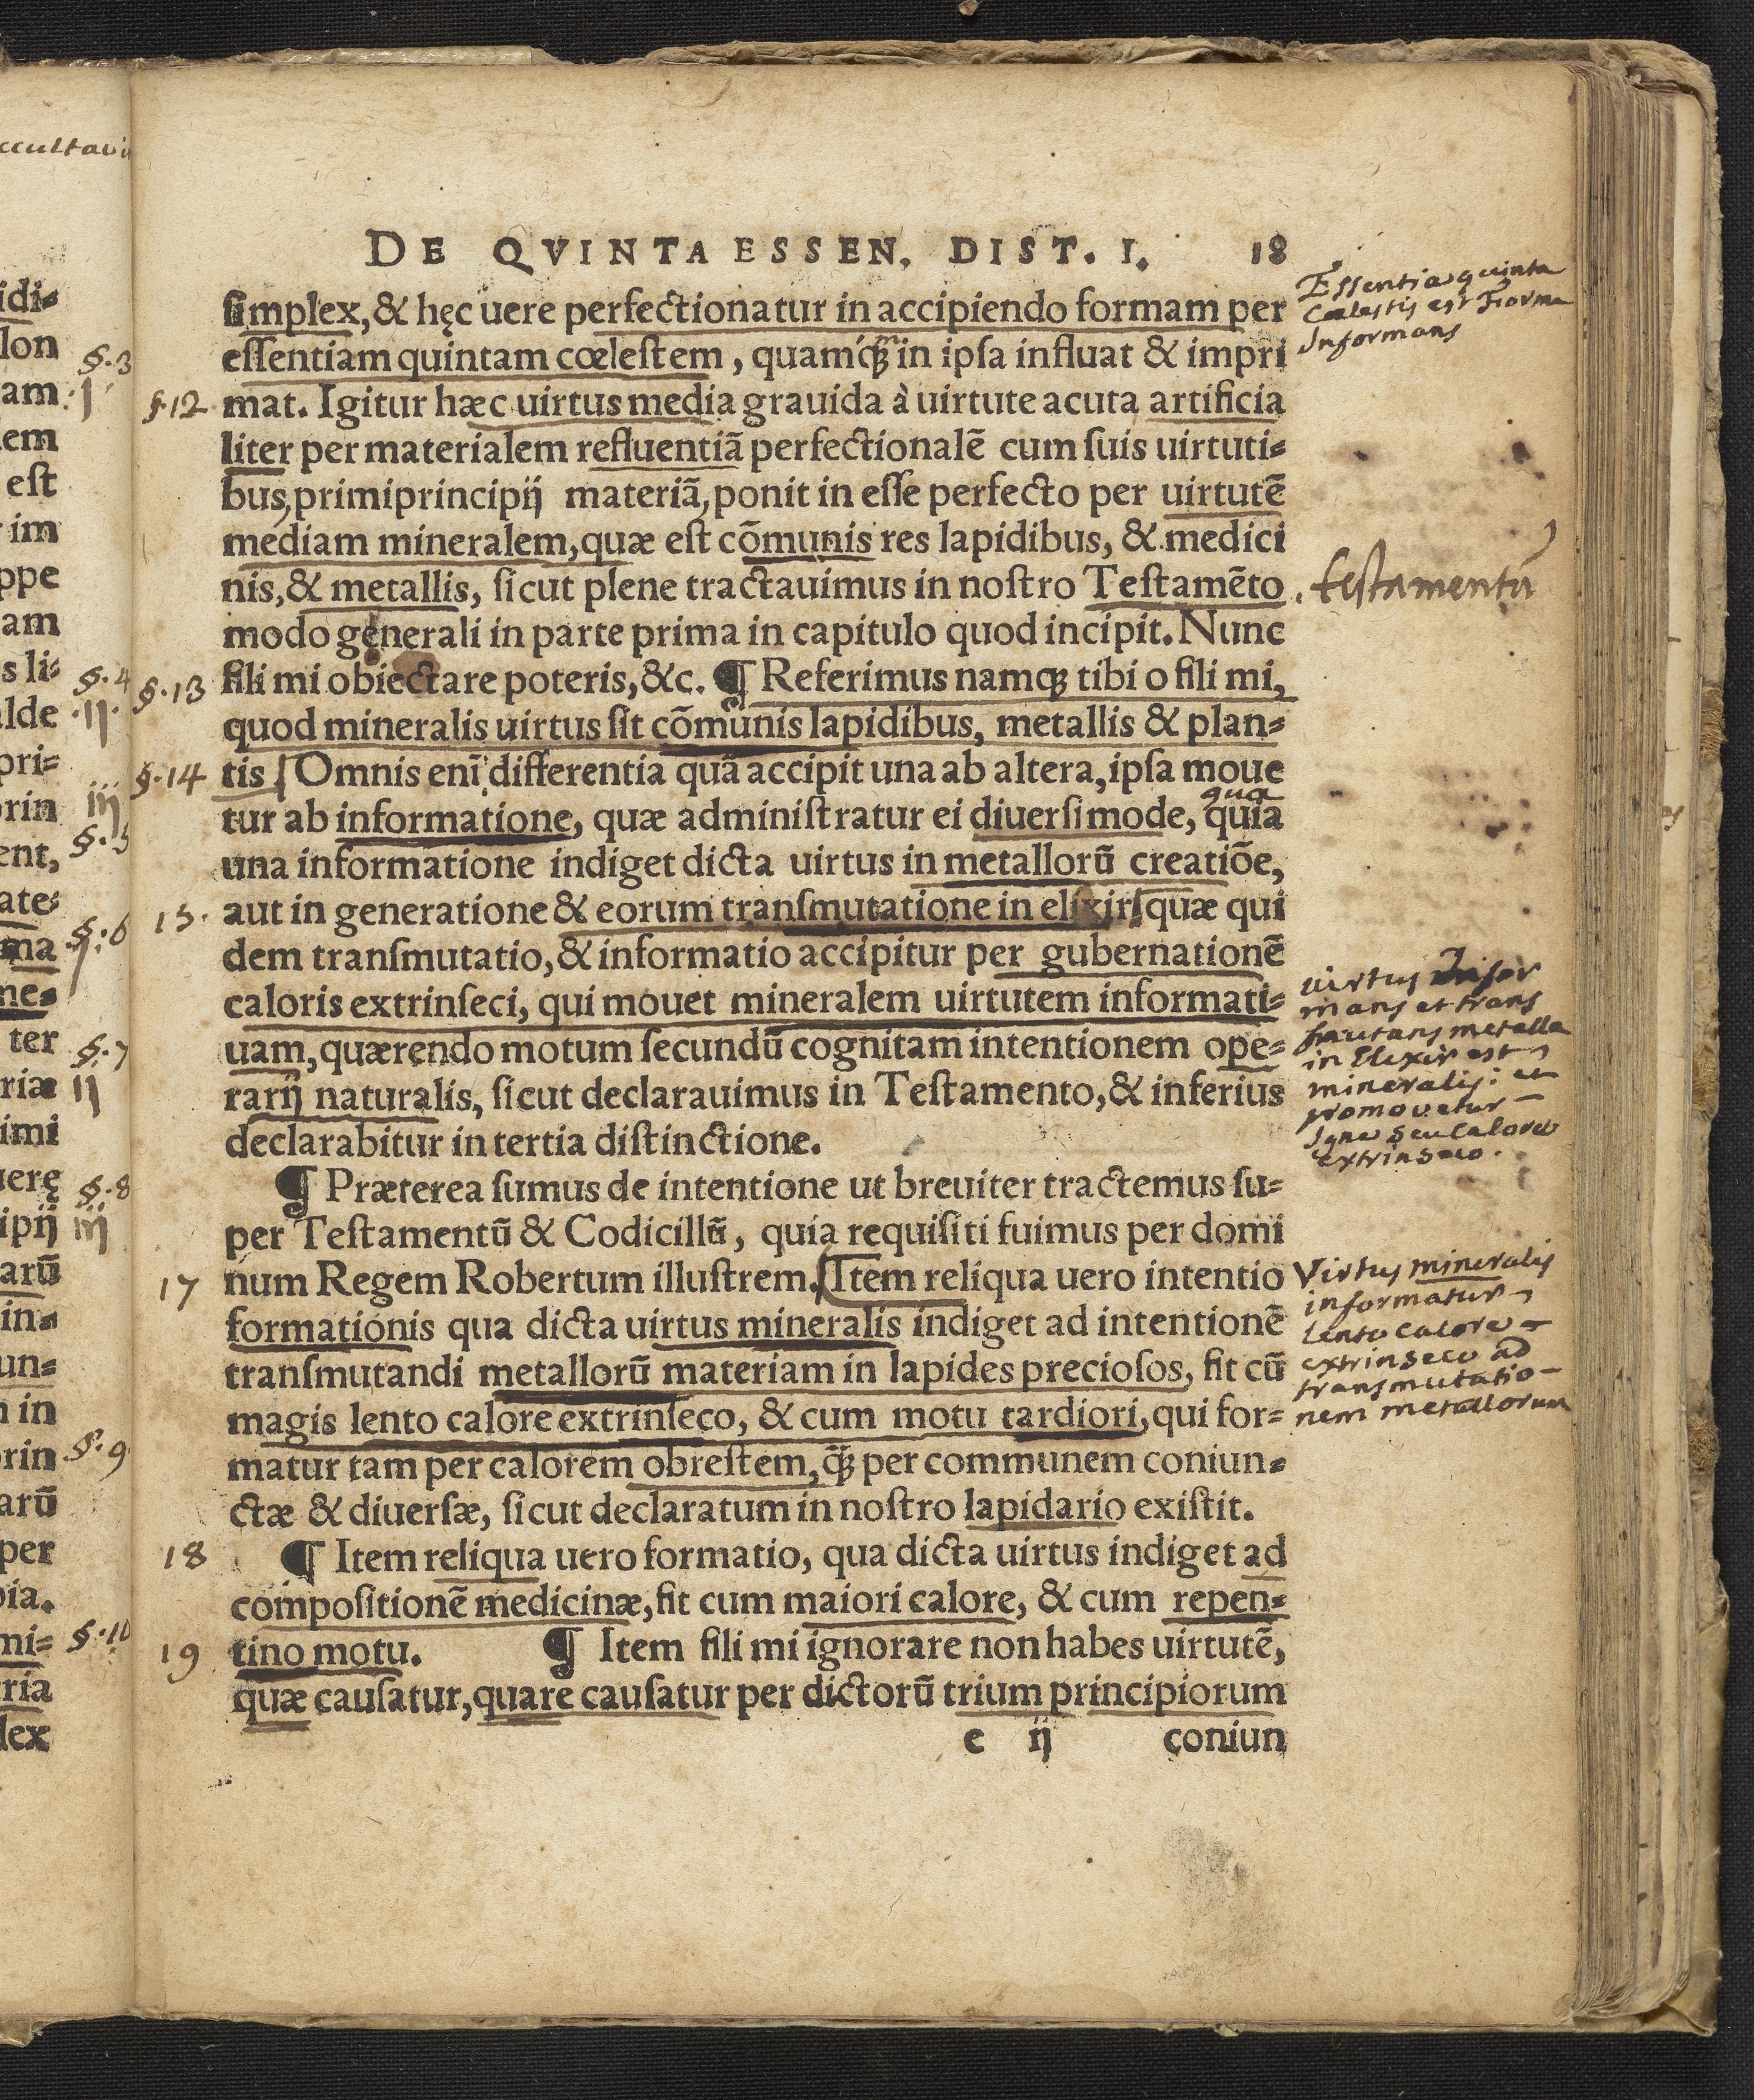 ccultavi
idi⸗
lon
am
em
est
im
ppe
am
s li⸗
alde
pri⸗
rin
ent,
ate⸗
ma
ne⸗
ter
riæ
imi
uerę
ipij
arū
in⸗
un⸗
in
rin
arū
per
ia.
mi⸗
ria
lex
§.3
j
§.4
ij
iij
§.5
§.6
§.7
ij
§.8
iij
§.9
§.10
DE QVINTA ESSEN. DIST. I. 18
ſimplex, & hęc uere perfectionatur in accipiendo formam per
eſſentiam quintam cœleſtem, quamꝗ; in ipſa influat & impri
§.12 mat. Igitur hæc uirtus media grauida à uirtute acuta artificia
liter per materialem refluentiā perfectionalē cum ſuis uirtuti⸗
bus, primiprincipij materiā, ponit in eſſe perfecto per uirtutē
mediam mineralem, quæ eſt cōmunis res lapidibus, & medici
nis, & metallis, ſicut plene tractauimus in noſtro Teſtamēto
modo generali in parte prima in capitulo quod incipit. Nunc
§.13 fili mi obiectare poteris, &c. ¶ Referimus namꝗ; tibi o fili mi,
quod mineralis uirtus ſit cōmunis lapidibus, metallis & plan⸗
§.14 tis Omnis enī differentia quā accipit una ab altera, ipſa moue
qua
tur ab informatione, quæ adminiſtratur ei diuerſimode, quia
una informatione indiget dicta uirtus in metallorū creatiōe,
15. aut in generatione & eorum tranſmutatione in elixir quæ qui
dem tranſmutatio, & informatio accipitur per gubernationē
caloris extrinſeci, qui mouet mineralem uirtutem informati⸗
uam, quærendo motum ſecundū cognitam intentionem ope⸗
rarij naturalis, ſicut declarauimus in Teſtamento, & inferius
declarabitur in tertia diſtinctione.
¶ Præterea ſumus de intentione ut breuiter tractemus ſu⸗
per Teſtamentū & Codicillū, quia requiſiti fuimus per domi
17 num Regem Robertum illuſtrem. Item reliqua uero intentio
formationis qua dicta uirtus mineralis indiget ad intentionē
tranſmutandi metallorū materiam in lapides precioſos, fit cū
magis lento calore extrinſeco, & cum motu tardiori, qui for⸗
matur tam per calorem obreſtem, ꝗ̄; per communem coniun⸗
ctæ & diuerſæ, ſicut declaratum in noſtro lapidario exiſtit.
18 ¶ Item reliqua uero formatio, qua dicta uirtus indiget ad
compoſitionē medicinæ, fit cum maiori calore, & cum repen⸗
19 tino motu. ¶ Item fili mi ignorare non habes uirtutē,
quæ cauſatur, quare cauſatur per dictorū trium principiorum
e ij coniun
Essentia quinta
Cœlestis est Forma
Informans
testamentū
virtus Infor
mans et trans
mutans metalla
in Elixir est
mineralis: et
promovetur
Igne seu Calore
extrinseco.
Virtus mineralis
informatur
lento calore
extrinseco ad
transmutatio-
nem metallorum